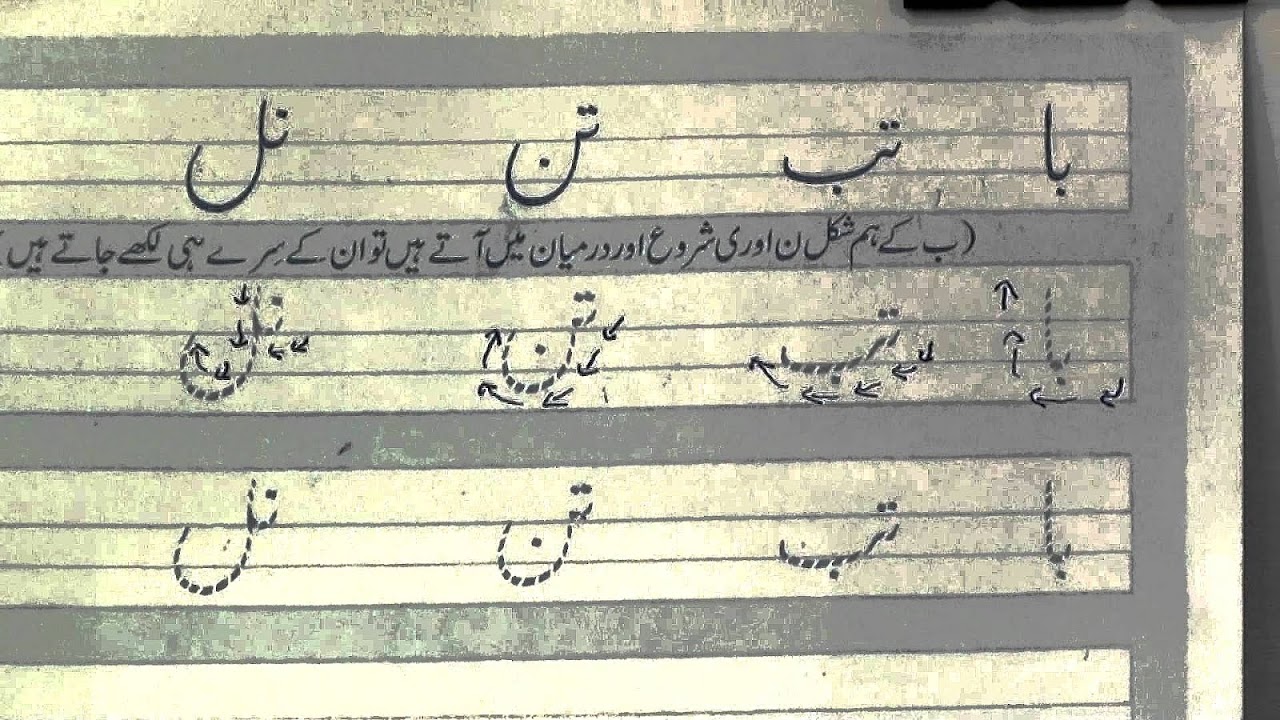 با تب تن نل
(ب کے ہم شکل ن اور ی شروع اور درمیان میں آتے ہیں تو ان کے سِرے ہی لکھے جاتے ہیں
با تب تن نل
با تب تن نل